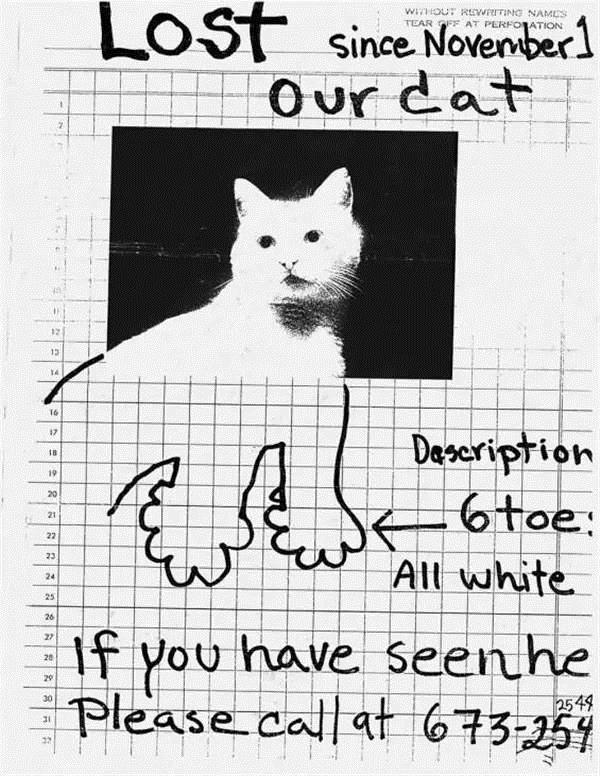 WITHOUT REWRITING NAMES
TEAR OFF AT PERFORATION
Lost since November 1
our cat
1
2
11
12
13
14
16
17
18
19
20
21
22
23
24
25
26
27
28
29
30
31
32
Description
6 toe:
All white
If you have seen he
Please call at 673-254
2544